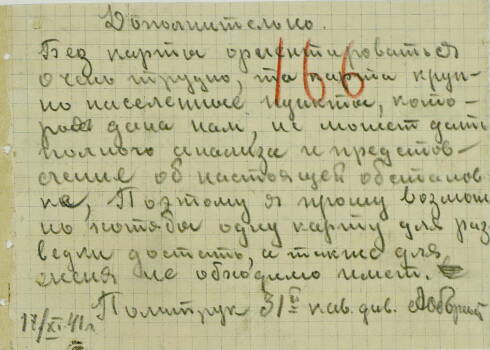 Дополнительно.
Без карты ориентироваться
очень трудно, та карта круп-
но населенные пункты, кото-
рая дана нам, не может дать
полного анализа и представ-
ление об настоящей обстанов
ке, Поэтому я прошу возмож
но хотябы одну карту для раз
ведки достать, а также для
меня не обходимо имет.
Политрук 31й кав. див.
17/XI 41 г.
166